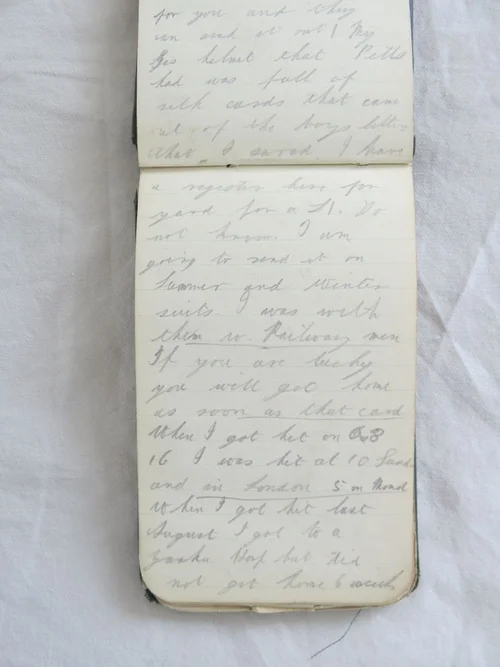 for you and they
can send it out! My
Gas helmet that Petts
had was full of
silk cards that came
out of the boys letters
that I saved I have
a register here for
yard for a £1. Do
not know. I am
going to send it on
Summer and Winter
suits I was with
them w. Railway men
If you are lucky
you will get home
as soon as that card
When I got hit on
16 I was hit at 10 Sund
and in London 5 on Mond
When I got hit last
August I got to a
Hosp but did
not get home 6 weeks